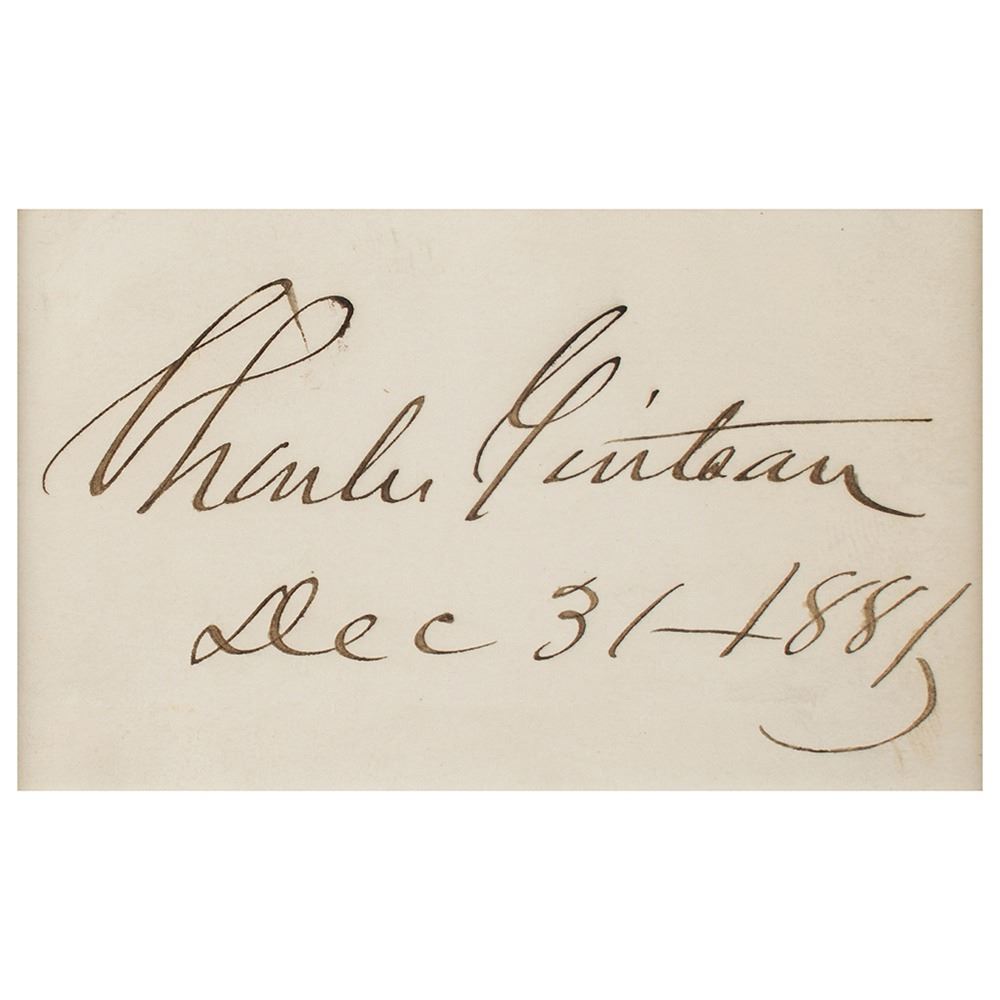 Charles Guiteau
Dec 31-1881